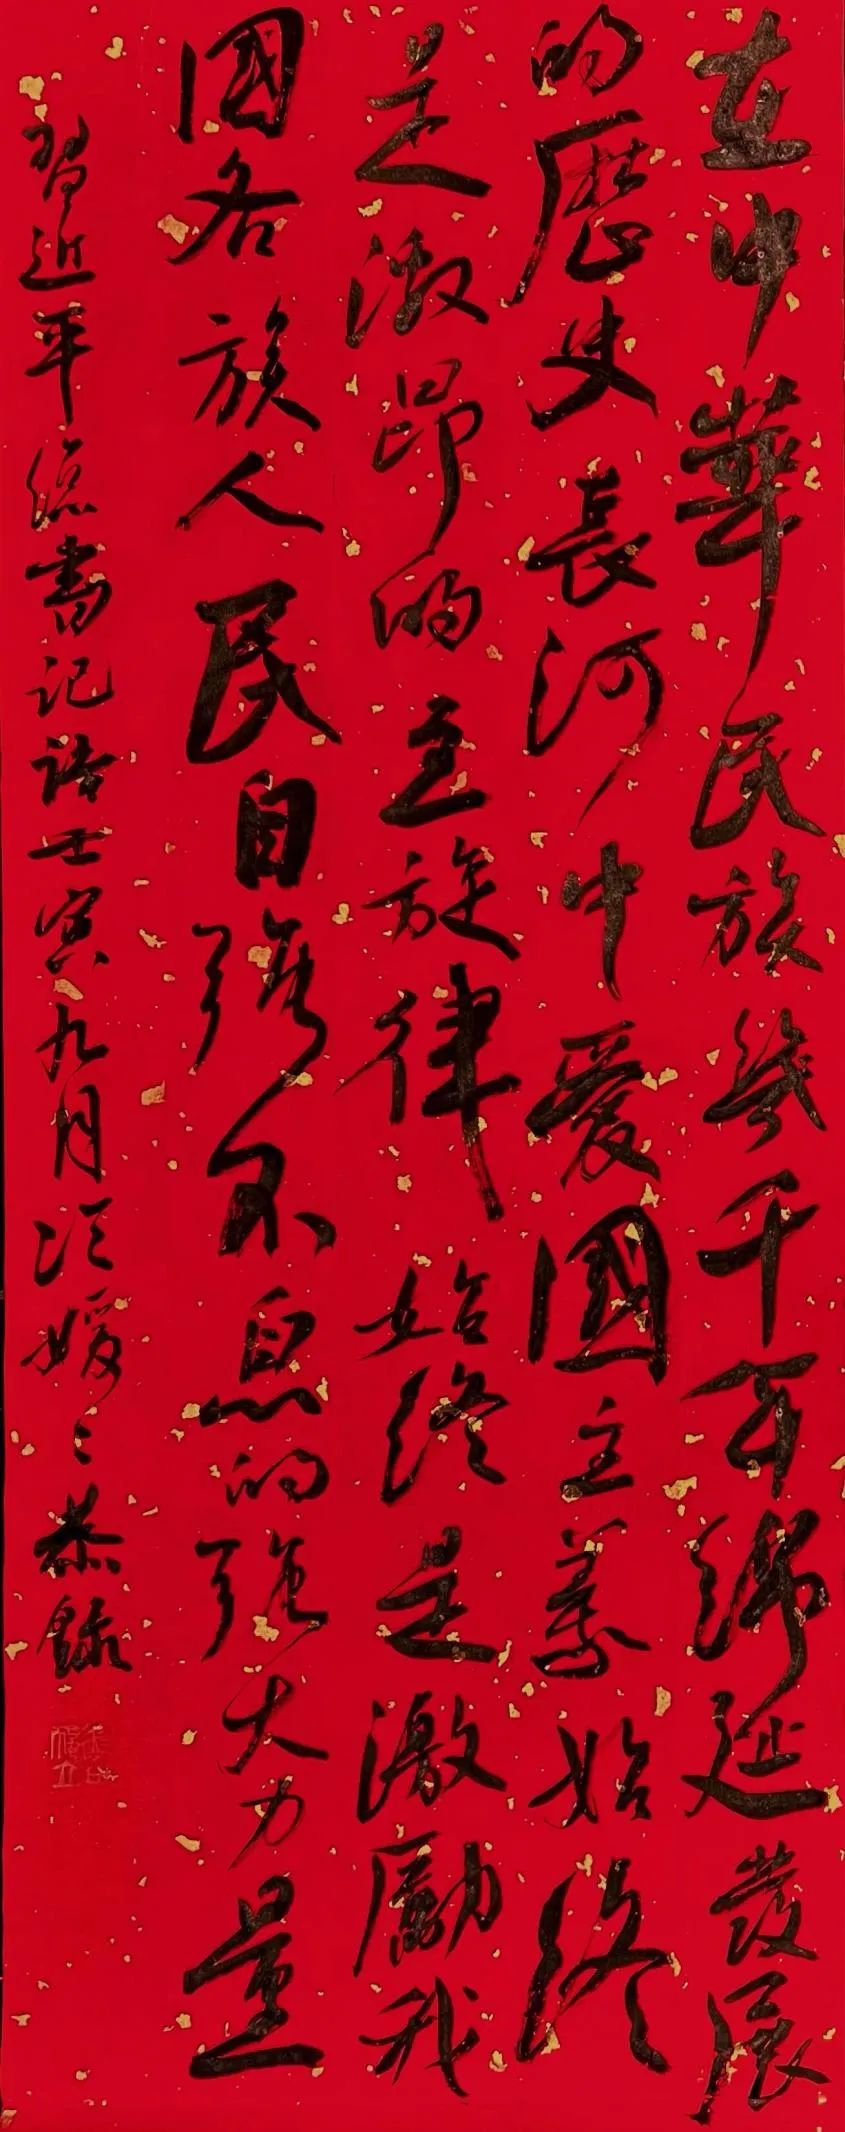 在中華民族幾千年綿延發展
的歷史長河中愛國主義始終
是激昂的主旋律始終是激勵我
國各族人民自強不息的強大力量
習近平總書記語壬寅九月洪媛々恭錄